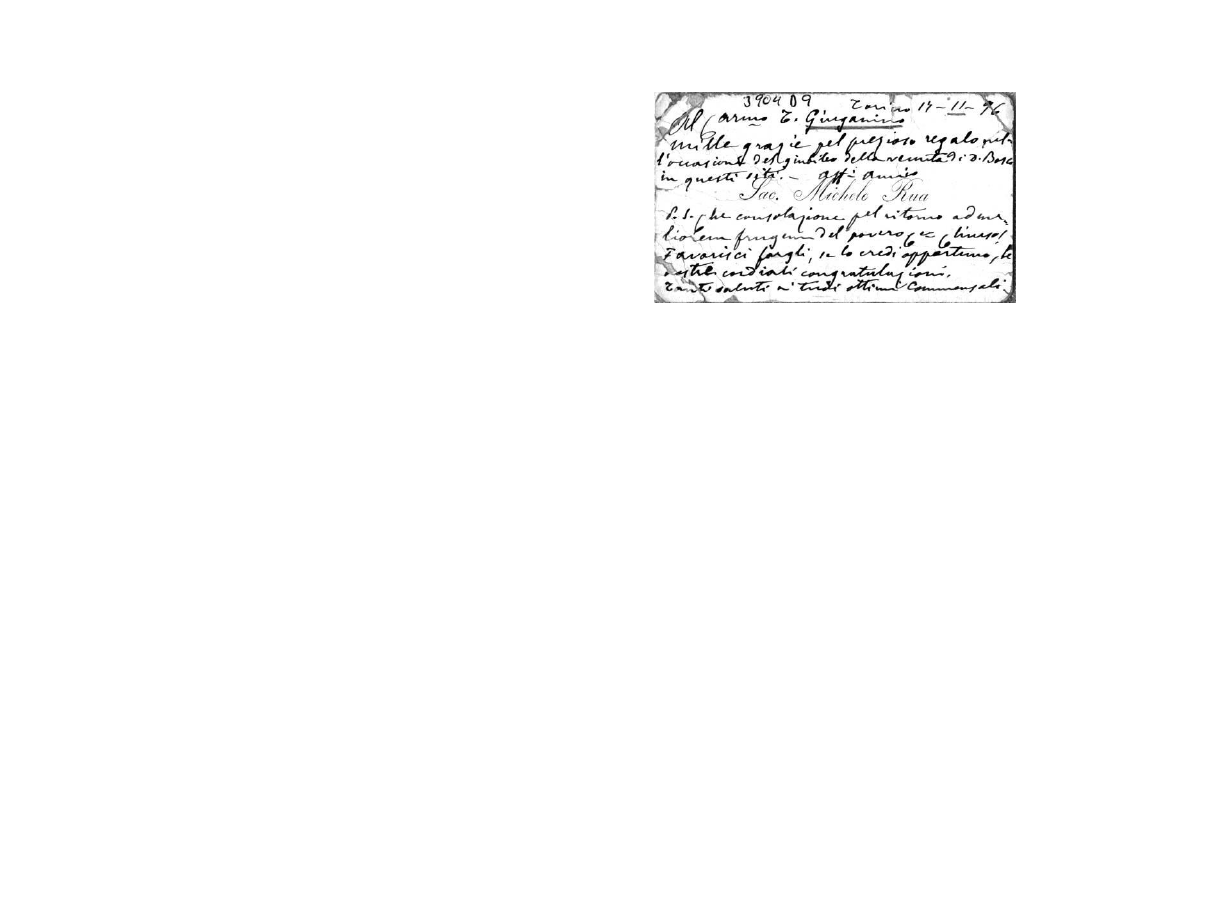 3904 D9
Torino 14-11-96
Al Carmo T. Giuganino
mille grazie pel prezioso regalo nel-
l'occasione del giubileo della venuta di D. Bosco
in questi siti. - aff. amico
Sac. Michele Rua
P.S. Che consolazione pel ritorno ad me-
liorem frugem del povero ex
Favorisci fargli, se lo credi opportuno, le
nostre cordiali congratulazioni.
Tanti saluti a' tuoi ottimi Commensali.